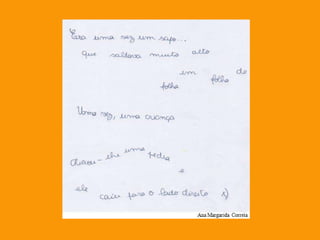 Era uma vez um sapo...
que saltava muito alto
em folha de
folha
Uma vez, uma criança
atirou-lhe uma pedra
e
ele caiu para o lado direito :)
Ana Margarida Correia